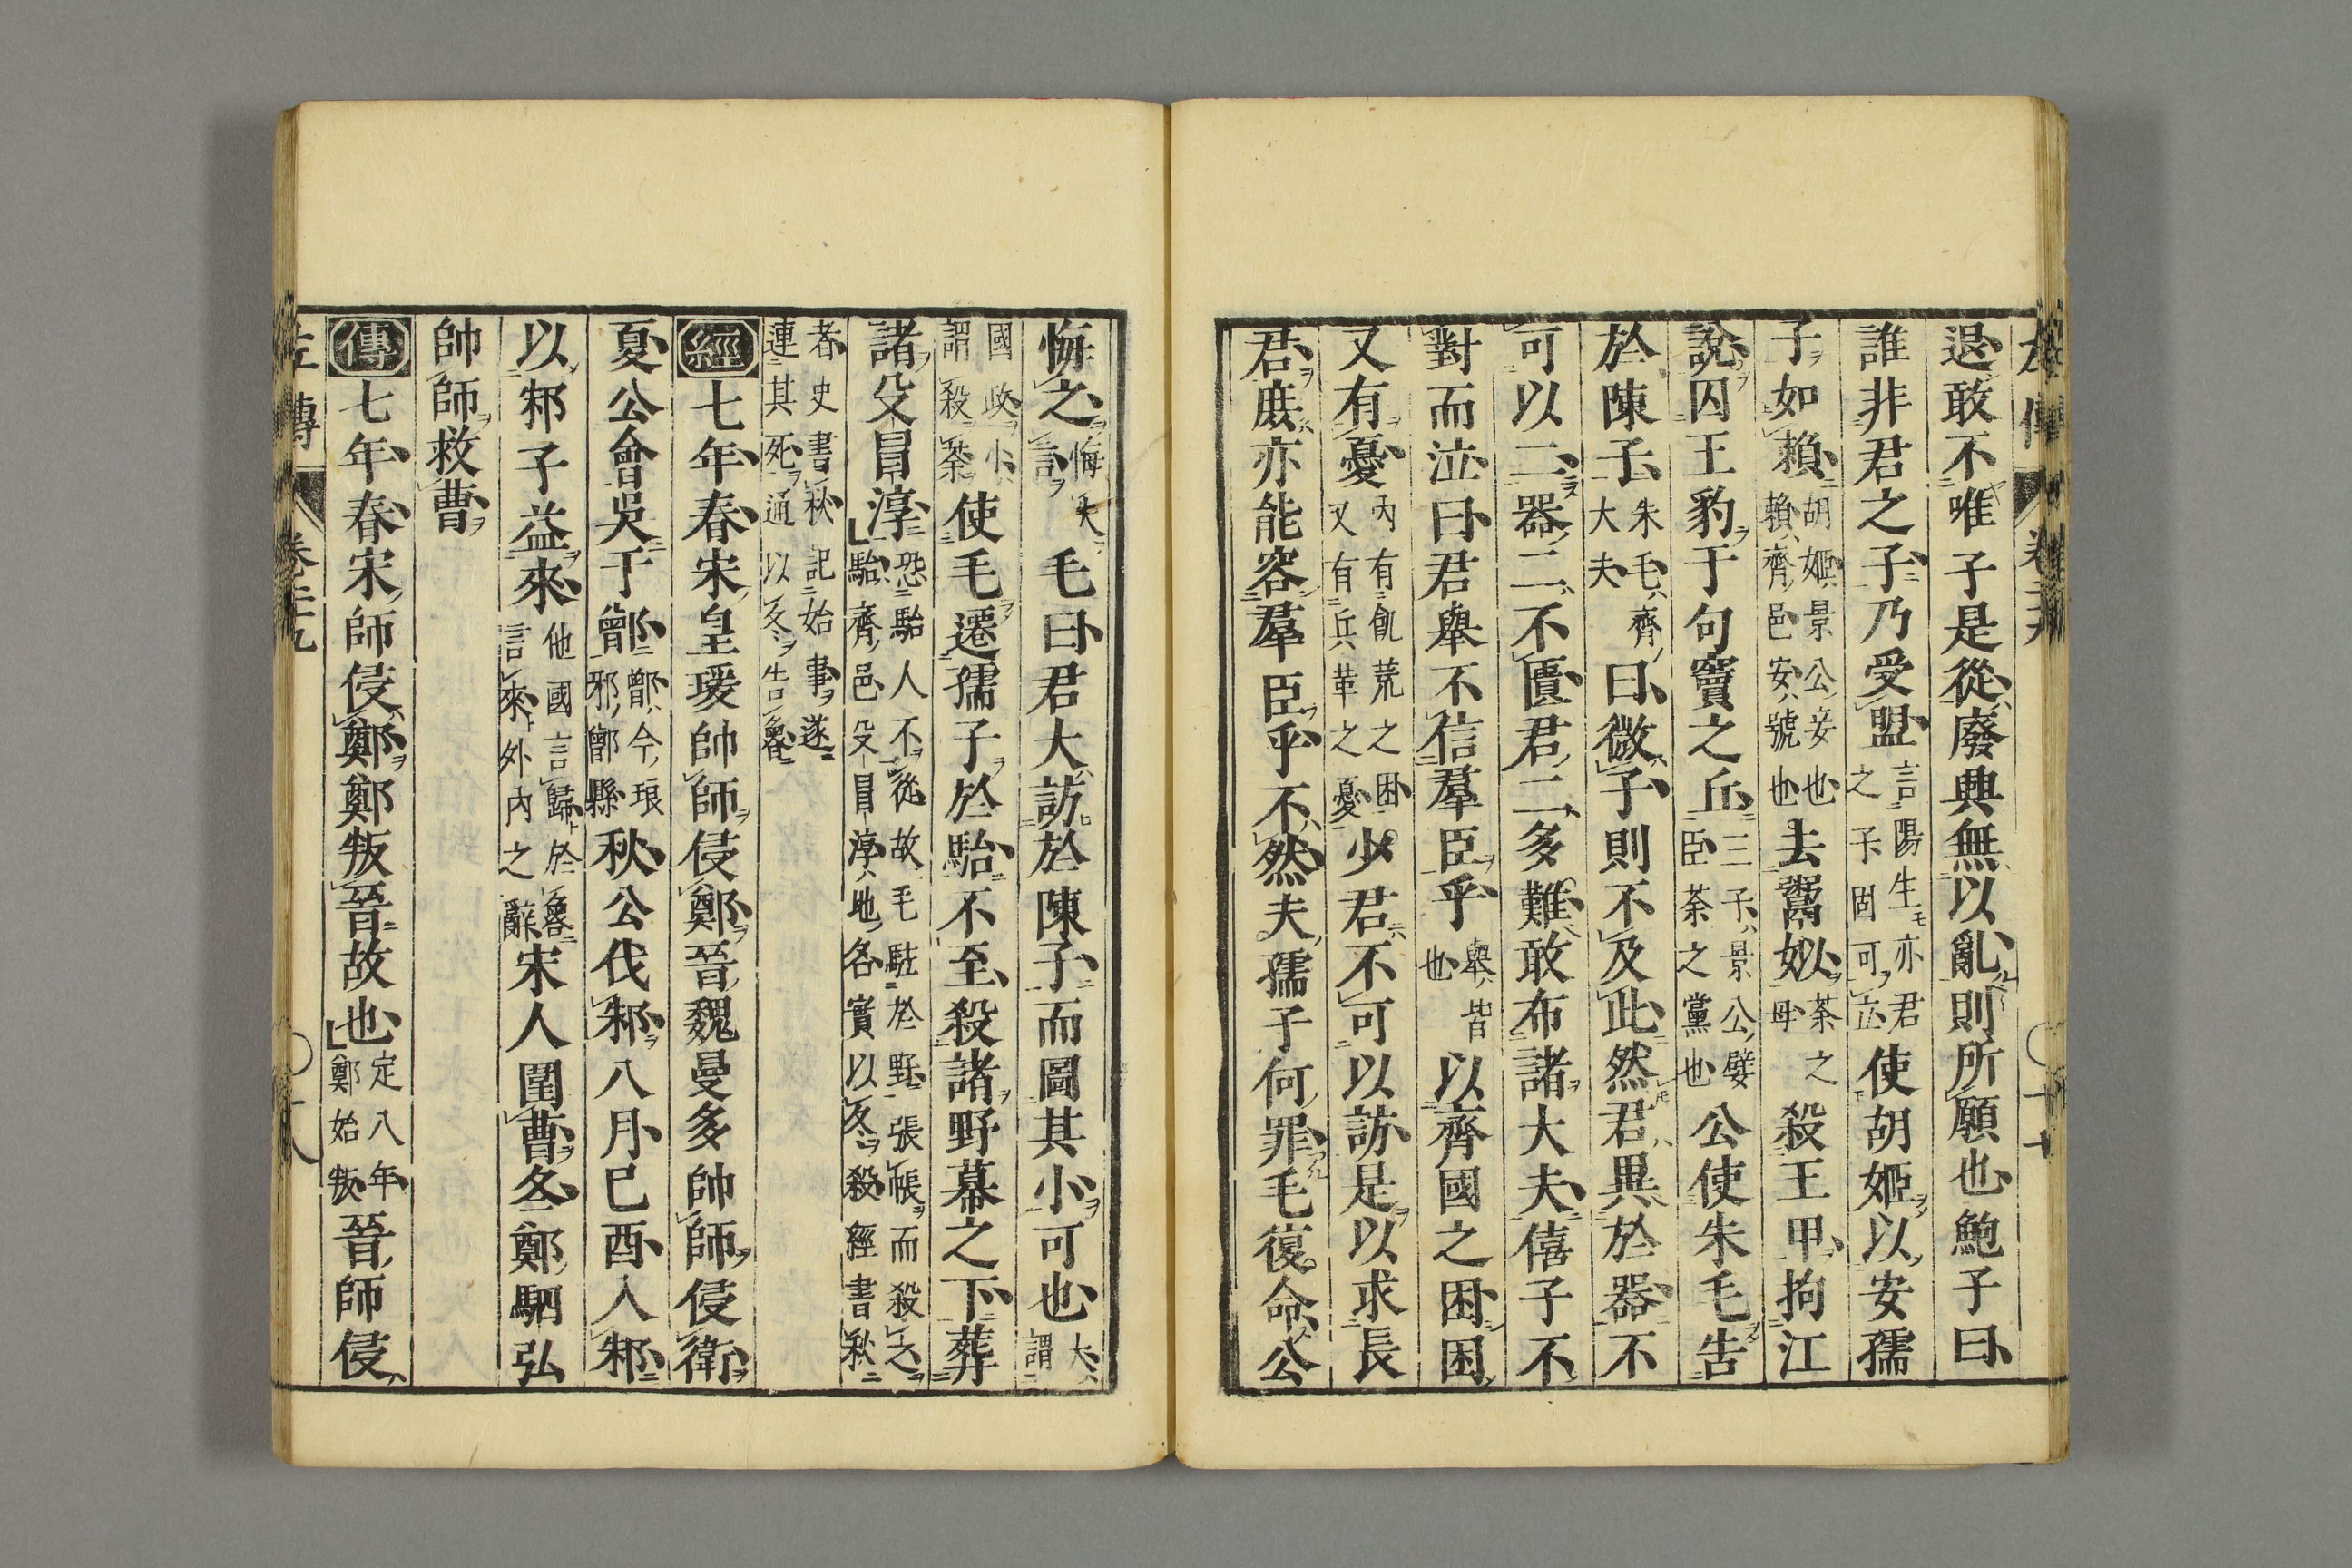 退敢不唯子是從廢興無以亂則所願也鮑子曰
誰非君之子乃受盟言陽生亦君之子固可立使胡姬以安孺
子如賴胡姬景公妾也賴齊邑安號也去鬻姒荼之母殺王甲拘江
說囚王豹于句竇之丘三子景公嬖臣荼之黨也公使朱毛告
於陳子朱毛齊大夫曰微子則不及此然君異於器不
可以二器二不匱君二多難敢布諸大夫僖子不
對而泣曰君舉不信羣臣乎舉皆也以齊國之困困
又有憂內有飢荒之困又有兵革之憂少君不可以訪是以求長
君庶亦能容羣臣乎不然夫孺子何罪毛復命公
悔之悔失言毛曰君大訪於陳子而圖其小可也大謂
國政小謂殺荼使毛遷孺子於駘不至殺諸野幕之下葬
諸殳冒淳恐駘人不從故毛駐於野張帳而殺之駘齊邑殳冒淳地名實以冬殺經書秋
者史書秋記始事遂連其死通以冬告魯
經七年春宋皇瑗帥師侵鄭晉魏曼多帥師侵衛
夏公會吳于鄫鄫今琅邪鄫縣秋公伐邾八月己酉入邾
以邾子益來他國言歸於魯言來外內之辭宋人圍曹冬鄭駟弘
帥師救曹
傳七年春宋師侵鄭鄭叛晉故也定八年鄭始叛晉師侵
左傳 卷二十九